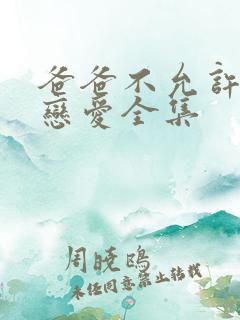 爸爸不允許
戀愛全集
周曉鷗
未经同意禁止转载